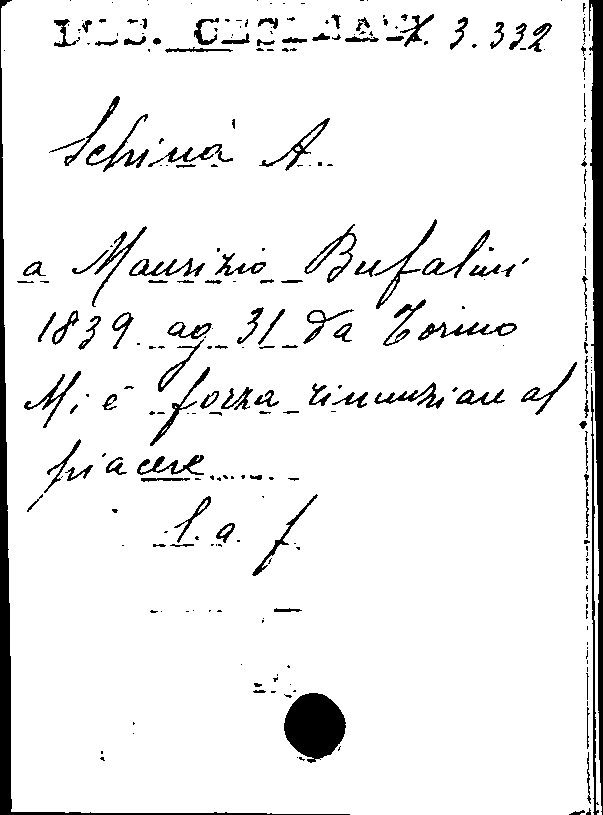 BIB. CESENATE. 3.332
Schinà A.
a Maurizio Bufalini
1839 ag 31 da Torino
Mi è forza rinunziare al
piacere
l. a. f.